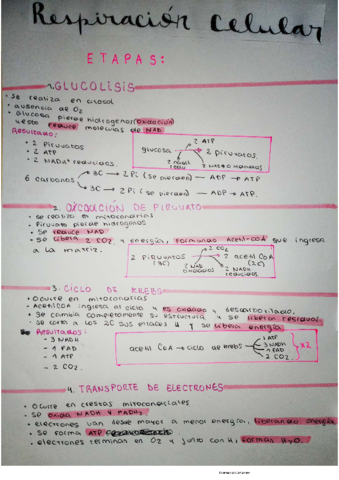 Respiración Celular
ETAPAS:
1. GLUCOLISIS
• Se realiza en citosol
• ausencia de O2
• Glucosa pierde hidrógenos (oxidación)
y esto reduce moléculas de NAD
Resultados:
• 2 Piruvatos
• 2 ATP
• 2 NADH+ reducidos
glucosa
2 ATP
2 piruvatos.
2 NAD+
2 NADH
6 carbonos
3C → 2Pi (se pierden) — ADP → ATP
3C → 2Pi (se pierden) — ADP → ATP.
2. OXIDACIÓN DE PIRUVATO
• se realiza en mitocondrias
• Piruvato pierde hidrógenos
• se reduce NAD
• se libera 2 CO2 y energía, formando Acetil-CoA que ingresa
a la matriz.
2 piruvatos
(3C)
2 CO2
2 acetil COA
(2C)
2 NAD
oxidados
2 NADH
reducidos
3. CICLO DE KREBS
• Ocurre en mitocondrias
• Acetilcoa ingresa al ciclo y es oxidado y descarboxilado.
• Se cambia completamente su estructura y se liberan residuos.
• se corta a los 2C sus enlaces H y se libera energía
Resultados:
• 3 NADH
• 1 FAD
• 1 ATP
• 2 CO2.
acetil COA → ciclo de krebs
1 ATP
3 NADH
1 FAD
2 CO2.
x2
4. TRANSPORTE DE ELECTRONES
• Ocurre en crestas mitocondriales
• Se oxida NADH y FADH2
• electrones van desde mayor a menor energía, liberando energía
• se forma ATP
• electrones terminan en O2 y junto con H, formas H2O.